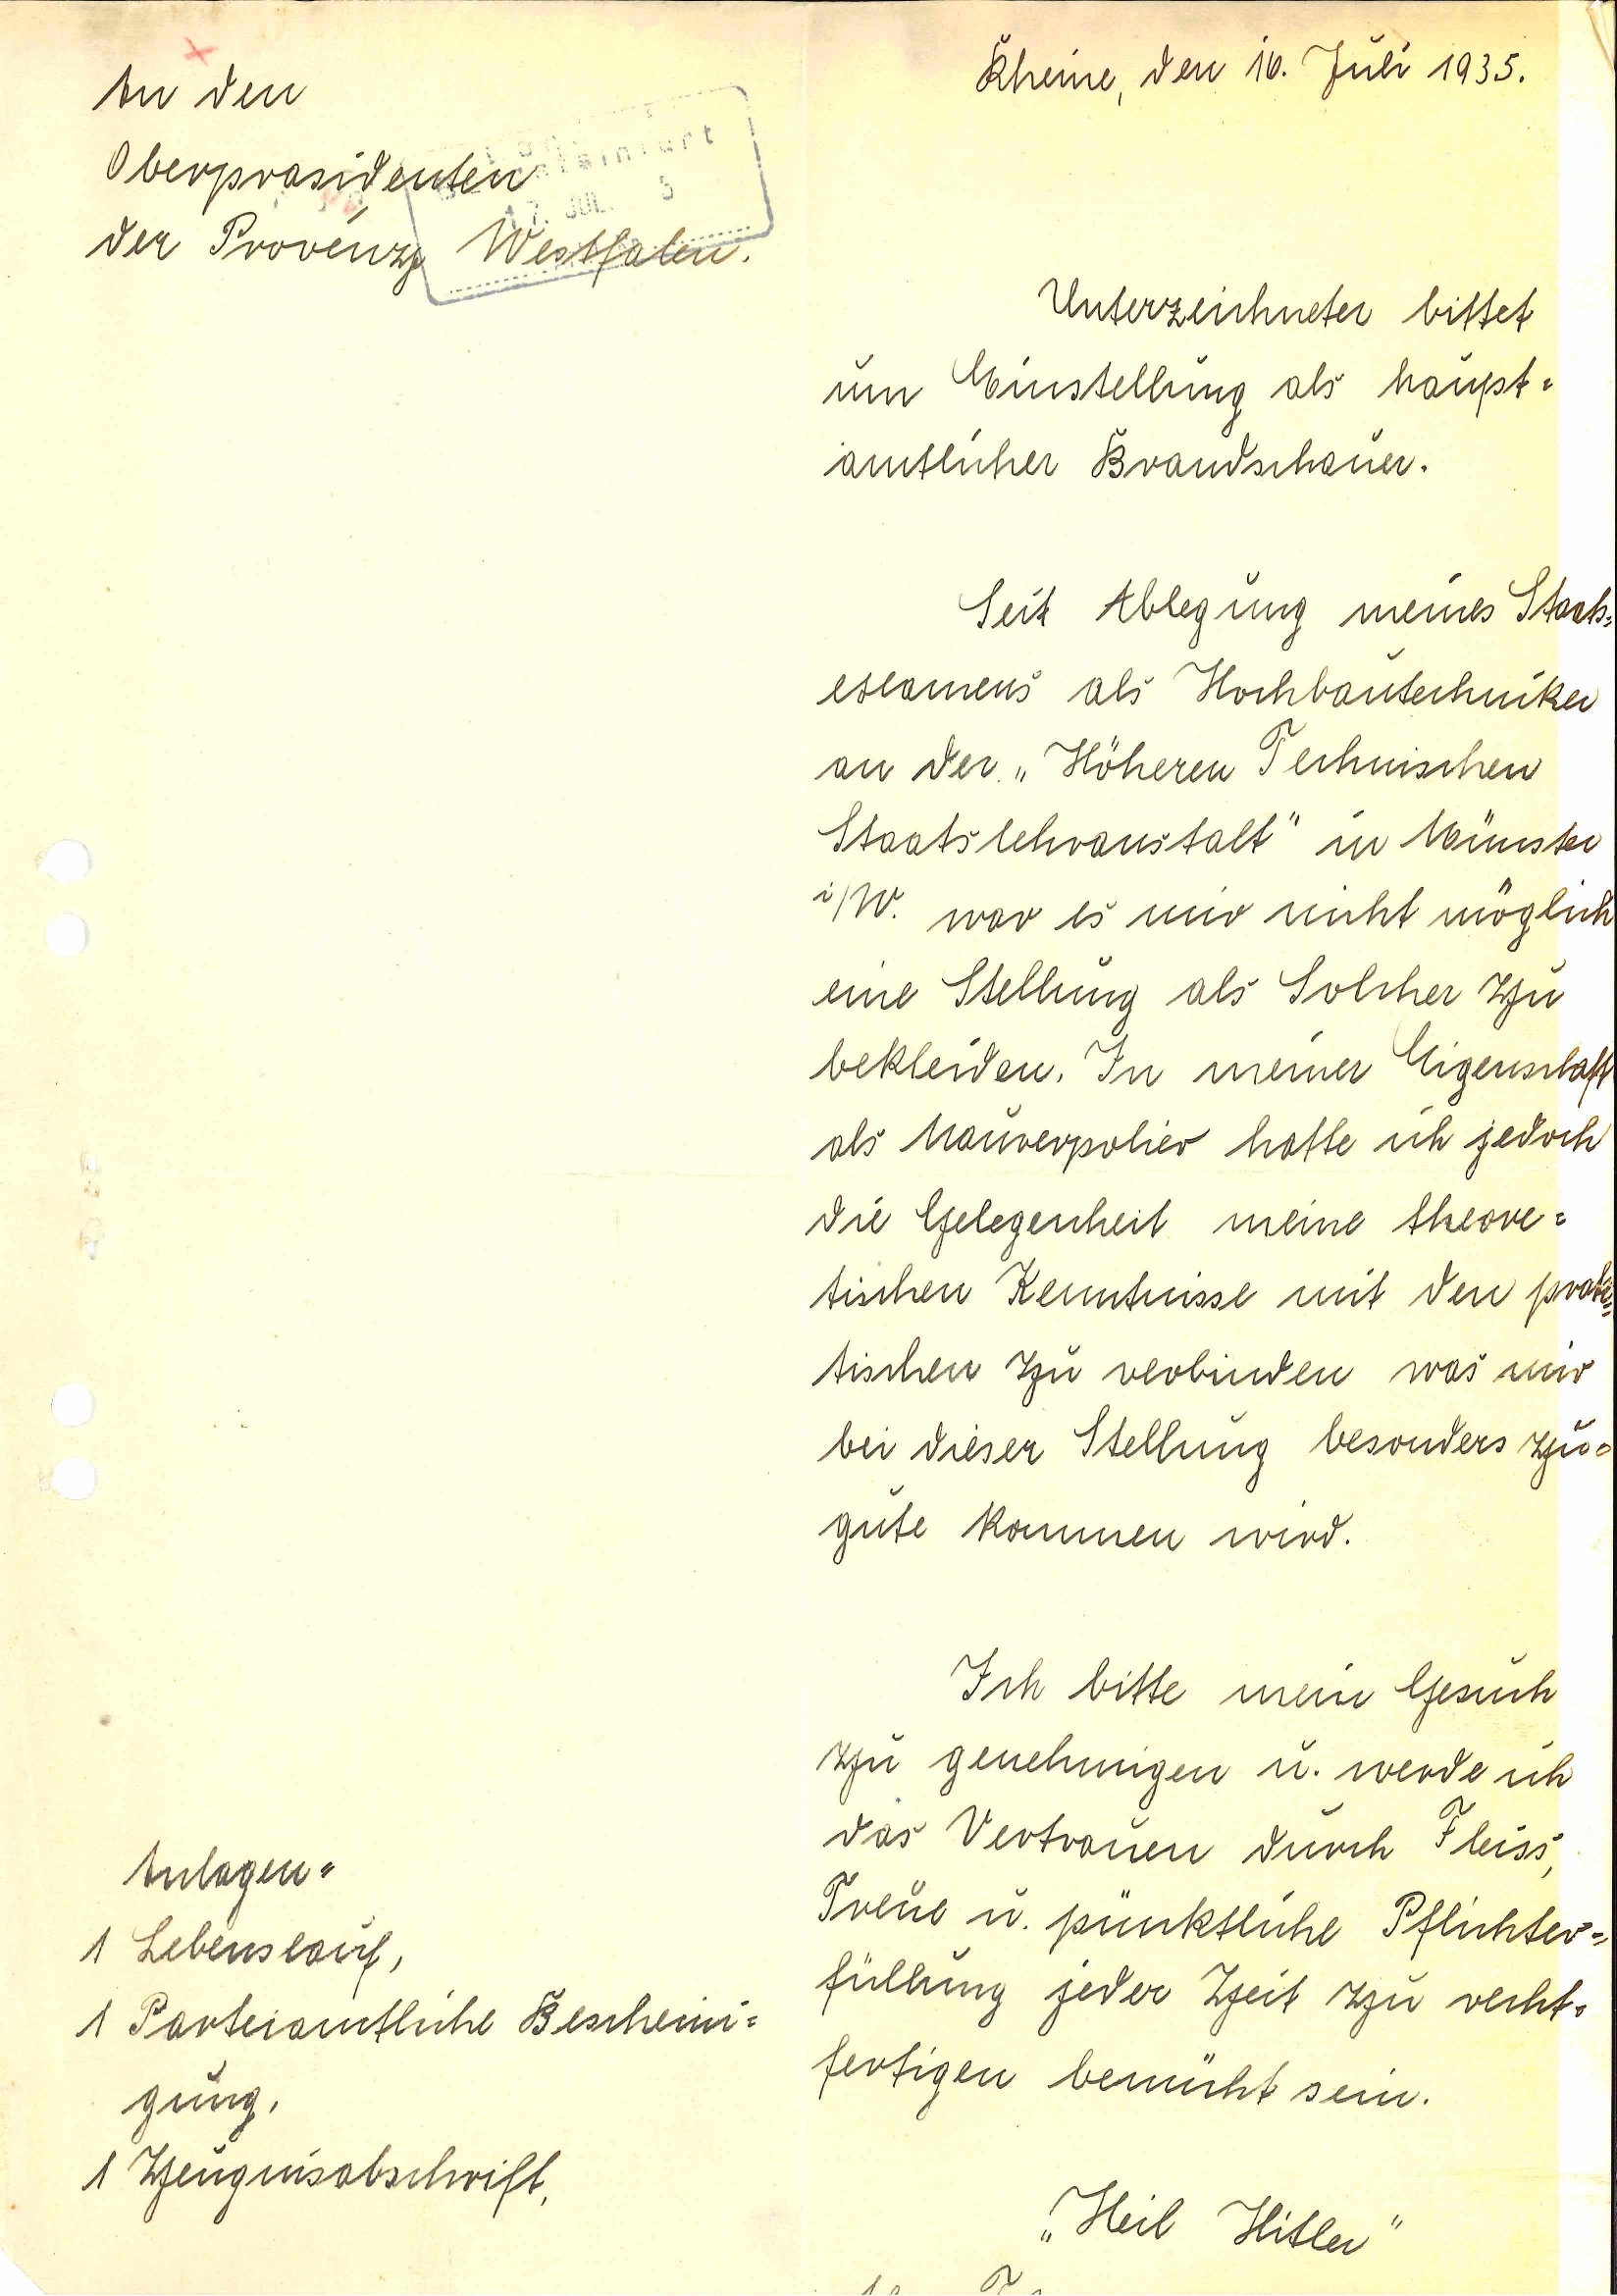 Rheine, den 16. Juli 1935.
An den
Oberpräsidenten
der Provinz Westfalen.
17. JUL.
Unterzeichneter bittet
um Einstellung als haupt=
amtlicher Brandschauer.
Seit Ablegung meines Staats=
examens als Hochbautechniker
an der „Höheren Technischen
Staatslehranstalt" in Münster
i/W. war es mir nicht möglich
eine Stellung als Solcher zu
bekleiden. In meiner Eigenschaft
als Maurerpolier hatte ich jedoch
die Gelegenheit meine theore=
tischen Kenntnisse mit den prak=
tischen zu verbinden was mir
bei dieser Stellung besonders zu=
gute kommen wird.
Ich bitte mein Gesuch
zu genehmigen u. werde ich
das Vertrauen durch Fleiss,
Treue u. pünktliche Pflichter=
füllung jeder Zeit zu recht=
fertigen bemüht sein.
„Heil Hitler"
Anlagen=
1 Lebenslauf,
1 Parteiamtliche Bescheini=
gung,
1 Zeugnisabschrift,